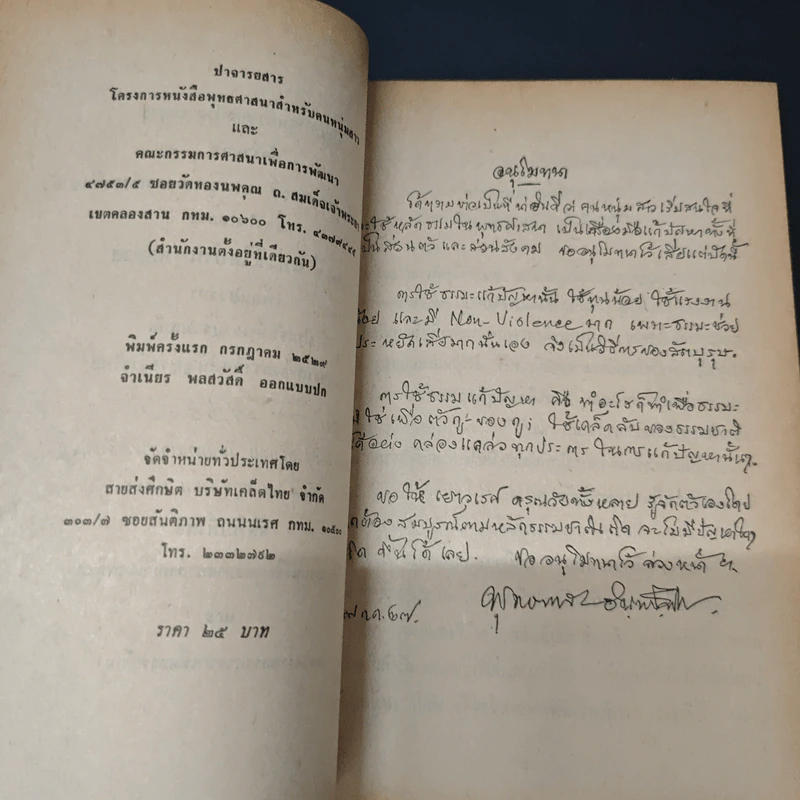 ปาจารยสาร
โครงการหนังสือพุทธศาสนาสำหรับคนหนุ่มสาว
และ
คณะกรรมการศาสนาเพื่อการพัฒนา
๔๗๕๓/๕ ซอยวัดทองนพคุณ ถ. สมเด็จเจ้าพระยา
เขตคลองสาน กทม. ๑๐๖๐๐ โทร.
(สำนักงานตั้งอยู่ที่เดียวกัน)
พิมพ์ครั้งแรก กรกฎาคม ๒๕๒๗
จำเนียร พลสวัสดิ์ ออกแบบปก
จัดจำหน่ายทั่วประเทศโดย
สายส่งศึกษิต บริษัทเคล็ดไทย จำกัด
๓๐๓/๗ ซอยสันติภาพ ถนนนเรศ กทม. ๑๐๕๐๐
โทร. ๒๓๓๒๗๘๒
ราคา ๒๕ บาท
อนุโมทนา
คนหนุ่มสาว เริ่มสนใจที่
ใช้หลักธรรมในพุทธศาสนา เป็นเครื่องมือแก้ปัญหาทั้งที่
เป็นส่วนตัว และส่วนสังคม ขออนุโมทนาไว้เสียแต่บัดนี้
การใช้ธรรมะแก้ปัญหานั้น ใช้ทุนน้อย ใช้แรงงาน
น้อย และมี Non-Violence มาก เพราะธรรมะช่วย
ประหยัดเสียมากนั่นเอง จึงเป็นวิธีการของสัตบุรุษ.
การใช้ธรรมแก้ปัญหา คือ ทำอะไรก็ทำเพื่อธรรมะ
มิใช่เพื่อตัวกู-ของกู; ใช้เคล็ดลับของธรรมชาติ
ได้อย่าง คล่องแคล่วทุกประการ ในการแก้ปัญหานั้นๆ.
ขอให้ เยาวเรศ ดรุณวัยทั้งหลาย รู้จักตัวเองโดย
ถูกต้อง สมบูรณ์ตามหลักธรรมชาติ จะไม่มีปัญหาใด
เกิดขึ้นได้เลย. ขออนุโมทนาไว้ล่วงหน้า
พุทธทาส อินทปัญโญ.
๗ ก.ค. ๒๗.